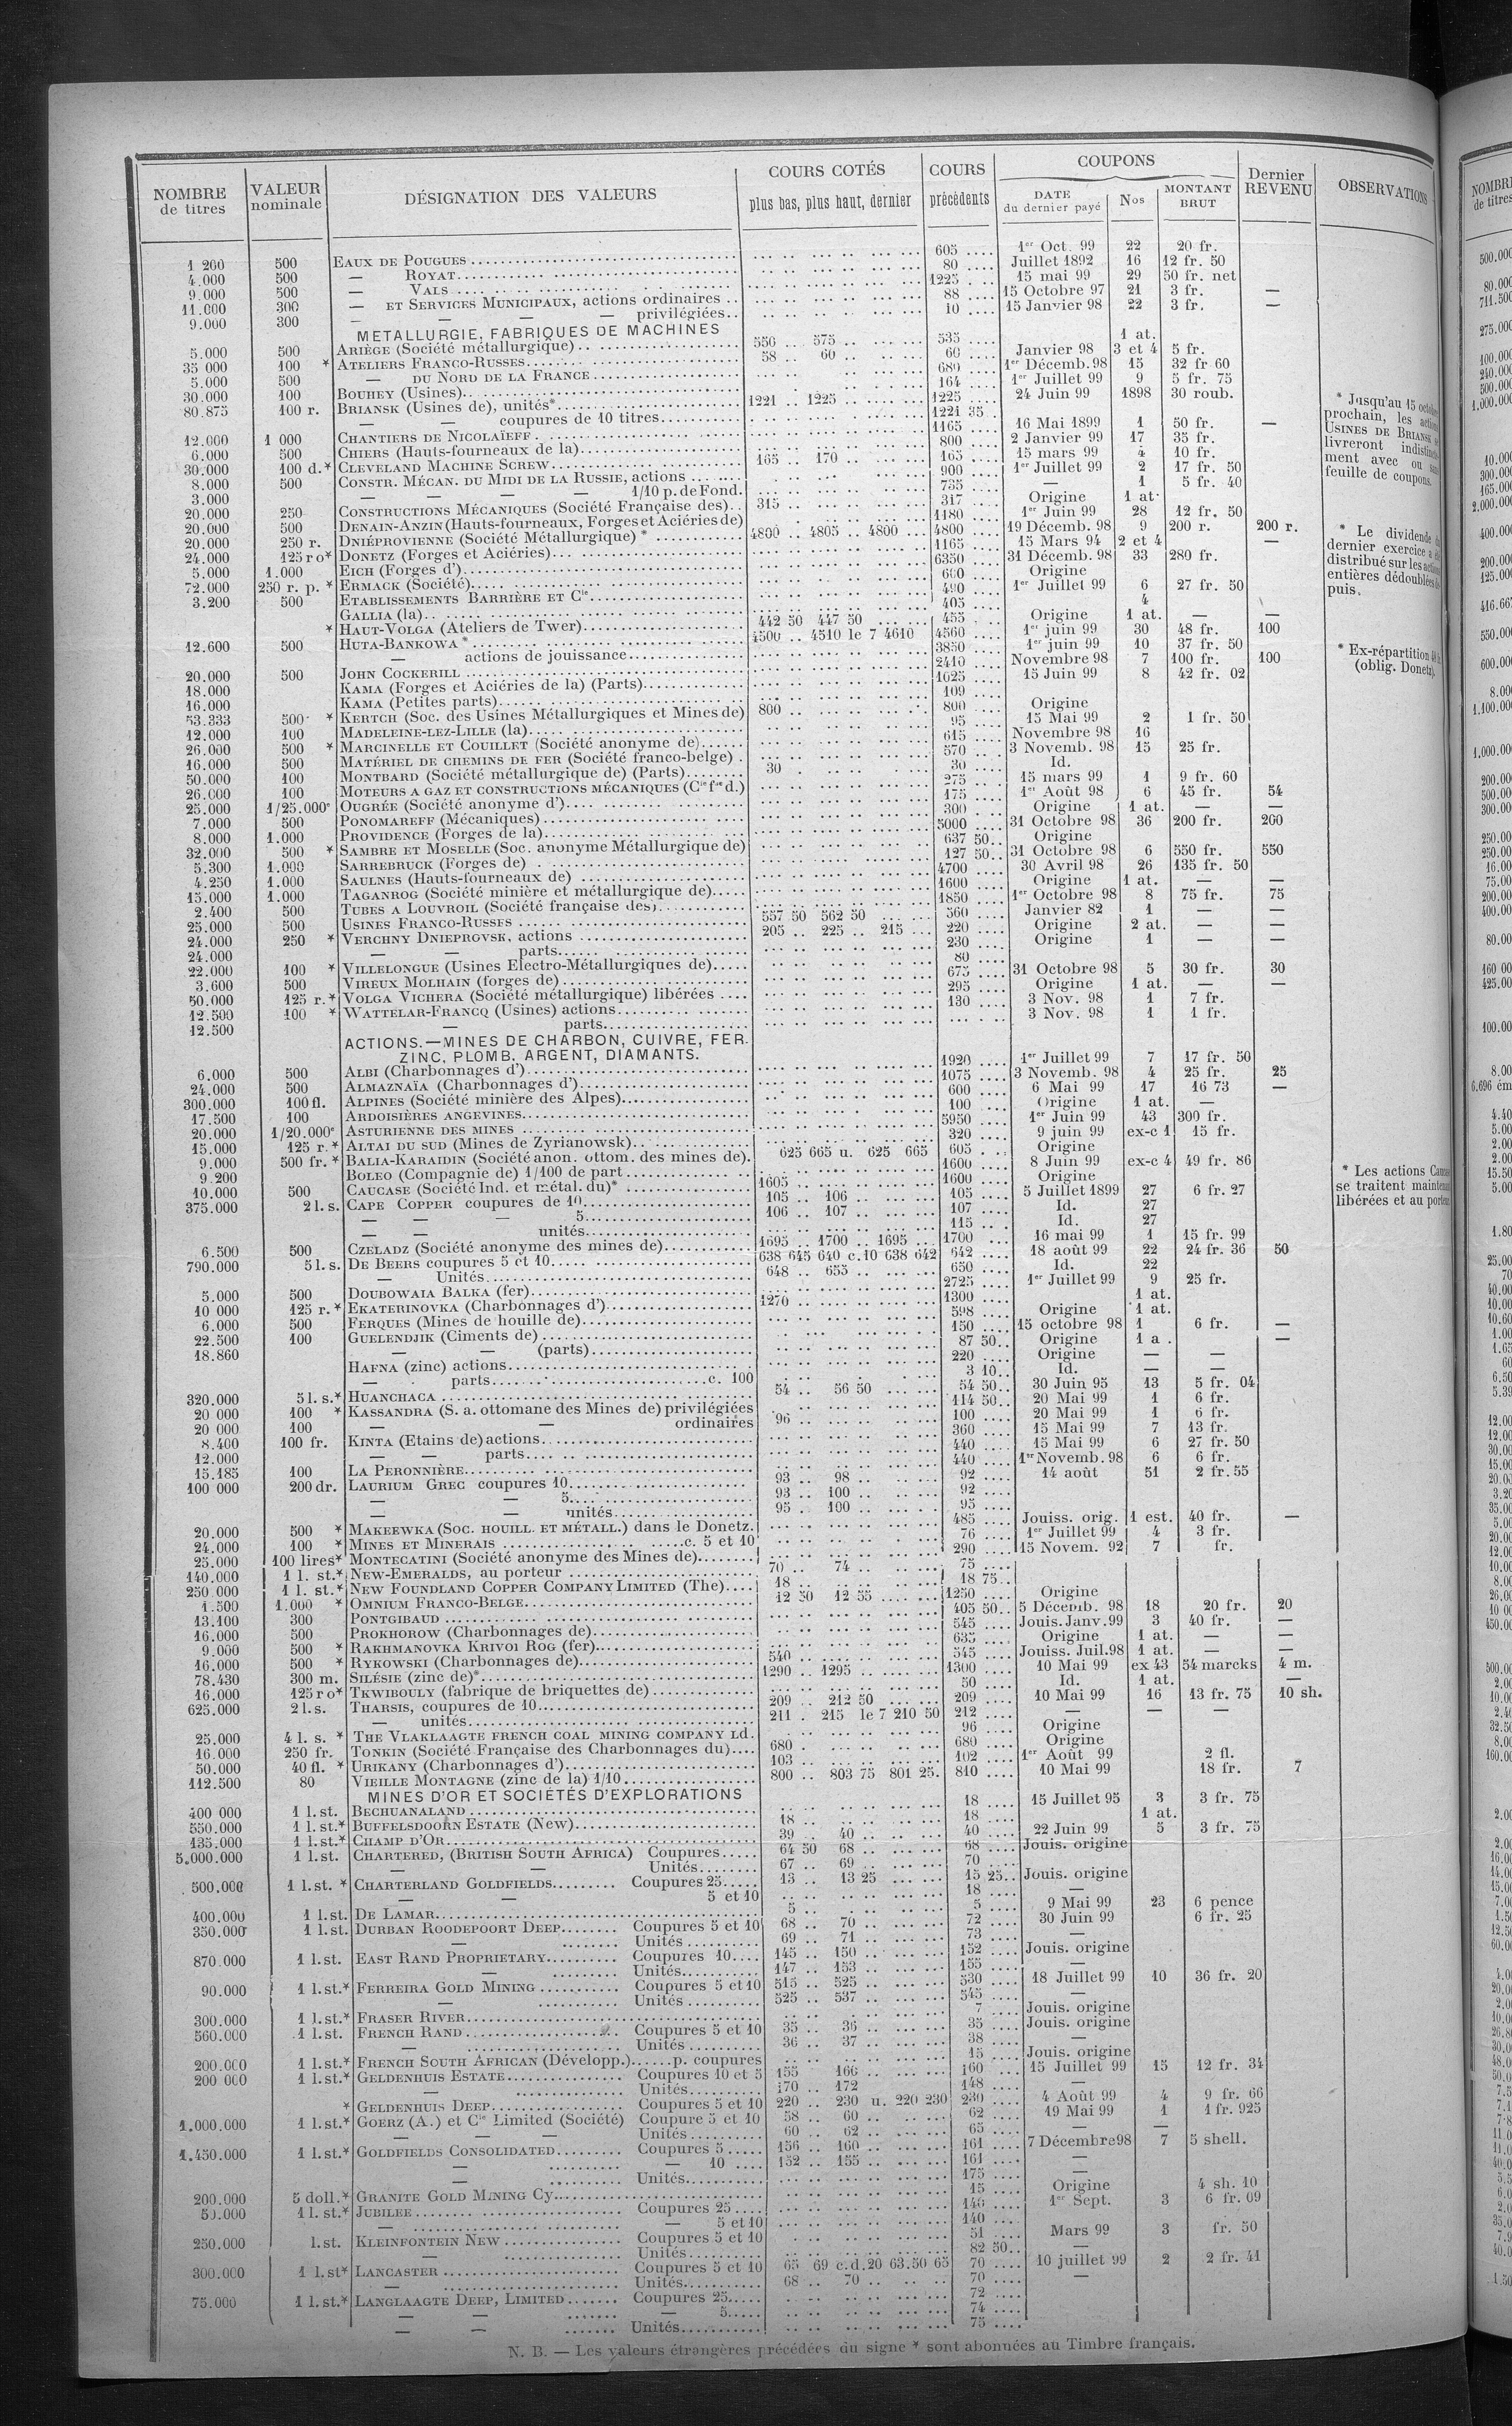 NOMBRE de titres | VALEUR nominale | DÉSIGNATION DES VALEURS | COURS COTÉS plus bas, plus haut, dernier | COURS précédents | COUPONS DATE du dernier payé | Nos | MONTANT BRUT | Dernier REVENU | OBSERVATIONS
1 200 500 EAUX DE POUGUES 605 1er Oct. 99 22 20 fr.
4.000 500 — ROYAT 80 Juillet 1892 16 12 fr. 50
9.000 500 — VALS 1225 15 mai 99 29 50 fr. net
11.000 300 — ET SERVICES MUNICIPAUX, actions ordinaires 88 15 Octobre 97 21 3 fr. —
9.000 300 — — — privilégiées 10 15 Janvier 98 22 3 fr. —
METALLURGIE, FABRIQUES DE MACHINES
5.000 500 ARIÈGE (Société métallurgique) 550 575 535 1 at.
35 000 100 * ATELIERS FRANCO-RUSSES 58 60 60 Janvier 98 3 et 4 5 fr.
5.000 500 — DU NORD DE LA FRANCE 680 1er Décemb. 98 15 32 fr 60
30.000 100 BOUHEY (Usines) 164 1er Juillet 99 9 5 fr. 75
80.875 100 r. BRIANSK (Usines de), unités* 1221 1225 1225 24 Juin 99 1898 30 roub.
— — coupures de 10 titres 1221 35
12.000 1 000 CHANTIERS DE NICOLAÏEFF 1165 16 Mai 1899 1 50 fr. —
6.000 500 CHIERS (Hauts-fourneaux de la) 800 2 Janvier 99 17 35 fr.
30.000 100 d.* CLEVELAND MACHINE SCREW 165 170 165 15 mars 99 4 10 fr.
8.000 500 CONSTR. MÉCAN. DU MIDI DE LA RUSSIE, actions 900 1er Juillet 99 2 17 fr. 50
3.000 — — — — 1/10 p. de Fond. 735 — 1 5 fr. 40
20.000 250 CONSTRUCTIONS MÉCANIQUES (Société Française des) 315 317 Origine 1 at.
20.000 500 DENAIN-ANZIN (Hauts-fourneaux, Forges et Aciéries de) 1180 1er Juin 99 28 12 fr. 50
20.000 250 r. DNIÉPROVIENNE (Société Métallurgique) * 4800 4805 4800 4800 19 Décemb. 98 9 200 r. 200 r.
24.000 125 r o* DONETZ (Forges et Aciéries) 1165 15 Mars 94 2 et 4 —
5.000 1.000 EICH (Forges d') 6350 31 Décemb. 98 33 280 fr.
72.000 250 r. p. * ERMACK (Société) 600 Origine
3.200 500 ETABLISSEMENTS BARRIÈRE ET Cie 490 1er Juillet 99 6 27 fr. 50
GALLIA (la) 405 4
* HAUT-VOLGA (Ateliers de Twer) 442 50 447 50 455 Origine 1 at. — —
12.600 500 HUTA-BANKOWA * 4500 4510 le 7 4610 4560 1er juin 99 30 48 fr. 100
— actions de jouissance 3850 1er juin 99 10 37 fr. 50
20.000 500 JOHN COCKERILL 2410 Novembre 98 7 100 fr. 100
18.000 KAMA (Forges et Aciéries de la) (Parts) 1625 15 Juin 99 8 42 fr. 02
16.000 KAMA (Petites parts) 109
53.333 500 * KERTCH (Soc. des Usines Métallurgiques et Mines de) 800 800 Origine
12.000 100 MADELEINE-LEZ-LILLE (la) 95 15 Mai 99 2 1 fr. 50
26.000 500 * MARCINELLE ET COUILLET (Société anonyme de) 615 Novembre 98 16
16.000 500 MATÉRIEL DE CHEMINS DE FER (Société franco-belge) 570 3 Novemb. 98 15 25 fr.
50.000 100 MONTBARD (Société métallurgique de) (Parts) 30 30 Id.
26.000 100 MOTEURS A GAZ ET CONSTRUCTIONS MÉCANIQUES (Cie fse d.) 275 15 mars 99 1 9 fr. 60
25.000 1/25.000e OUGRÉE (Société anonyme d') 175 1er Août 98 6 45 fr. 54
7.000 500 PONOMAREFF (Mécaniques) 300 Origine 1 at. — —
8.000 1.000 PROVIDENCE (Forges de la) 5000 31 Octobre 98 36 200 fr. 200
32.000 500 * SAMBRE ET MOSELLE (Soc. anonyme Métallurgique de) 637 50 Origine
5.300 1.000 SARREBRUCK (Forges de) 127 50 31 Octobre 98 6 550 fr. 550
4.250 1.000 SAULNES (Hauts-fourneaux de) 4700 30 Avril 98 26 135 fr. 50
15.000 1.000 TAGANROG (Société minière et métallurgique de) 1600 Origine 1 at. — —
2.400 500 TUBES A LOUVROIL (Société française des) 1850 1er Octobre 98 8 75 fr. 75
25.000 500 USINES FRANCO-RUSSES 557 50 562 50 560 Janvier 82 1 — —
24.000 250 * VERCHNY DNIEPROVSK, actions 205 225 215 220 Origine 2 at. — —
24.000 — — parts 230 Origine 1 — —
22.000 100 * VILLELONGUE (Usines Electro-Métallurgiques de) 80
3.600 500 VIREUX MOLHAIN (forges de) 675 31 Octobre 98 5 30 fr. 30
50.000 125 r.* VOLGA VICHERA (Société métallurgique) libérées 295 Origine 1 at. — —
12.500 100 * WATTELAR-FRANCQ (Usines) actions 130 3 Nov. 98 1 7 fr.
12.500 — parts 3 Nov. 98 1 1 fr.
ACTIONS.—MINES DE CHARBON, CUIVRE, FER.
ZINC, PLOMB, ARGENT, DIAMANTS.
6.000 500 ALBI (Charbonnages d') 1920 1er Juillet 99 7 17 fr. 50
24.000 500 ALMAZNAÏA (Charbonnages d') 1075 3 Novemb. 98 4 25 fr. 25
300.000 100 fl. ALPINES (Société minière des Alpes) 600 6 Mai 99 17 16 73 —
17.500 100 ARDOISIÈRES ANGEVINES 100 Origine 1 at. —
20.000 1/20.000e ASTURIENNE DES MINES 5950 1er Juin 99 43 300 fr.
15.000 125 r.* ALTAI DU SUD (Mines de Zyrianowsk) 320 9 juin 99 ex-c 1 15 fr.
9.000 500 fr.* BALIA-KARAIDIN (Société anon. ottom. des mines de) 625 665 u. 625 665 605 Origine
9.200 BOLEO (Compagnie de) 1/100 de part 1600 8 Juin 99 ex-c 4 49 fr. 86
10.000 500 CAUCASE (Société Ind. et métal. du)* 1605 1600 Origine
375.000 2 l. s. CAPE COPPER coupures de 10 105 106 105 5 Juillet 1899 27 6 fr. 27
— — — 5 106 107 107 Id. 27
— — unités 115 Id. 27
6.500 500 CZELADZ (Société anonyme des mines de) 1695 1700 1695 1700 16 mai 99 1 15 fr. 99
790.000 5 l. s. DE BEERS coupures 5 et 10 638 645 640 c.10 638 642 642 18 août 99 22 24 fr. 36 50
— Unités 648 655 650 Id. 22
5.000 500 DOUBOWAIA BALKA (fer) 2725 1er Juillet 99 9 25 fr.
10 000 125 r.* EKATERINOVKA (Charbonnages d') 1270 1300 1 at.
6.000 500 FERQUES (Mines de houille de) 598 Origine 1 at.
22.500 100 GUELENDJIK (Ciments de) 150 15 octobre 98 1 6 fr. —
18.860 — — (parts) 87 50 Origine 1 a . —
HAFNA (zinc) actions 220 Origine — —
— parts c. 100 3 10 Id. — —
320.000 5 l. s.* HUANCHACA 54 56 50 54 50 30 Juin 95 13 5 fr. 04
20 000 100 * KASSANDRA (S. a. ottomane des Mines de) privilégiées 114 50 20 Mai 99 1 6 fr.
20 000 100 — — ordinaires 96 100 20 Mai 99 1 6 fr.
8.400 100 fr. KINTA (Etains de) actions 360 15 Mai 99 7 13 fr.
12.000 — — parts 440 15 Mai 99 6 27 fr. 50
15.185 100 LA PERONNIÈRE 440 1er Novemb. 98 6 6 fr.
100 000 200 dr. LAURIUM GREC coupures 10 93 98 92 14 août 51 2 fr. 55
— — 5 93 100 92
— — unités 95 100 95
20.000 500 * MAKEEWKA (SOC. HOUILL. ET MÉTALL.) dans le Donetz. 485 Jouiss. orig. 1 est. 40 fr. —
24.000 100 * MINES ET MINERAIS c. 5 et 10 76 1er Juillet 99 4 3 fr.
25.000 100 lires* MONTECATINI (Société anonyme des Mines de) 290 15 Novem. 92 7 fr.
140.000 1 l. st.* NEW-EMERALDS, au porteur 70 74 75
250.000 1 l. st.* NEW FOUNDLAND COPPER COMPANY LIMITED (The) 18 18 75
1.500 1.000 * OMNIUM FRANCO-BELGE 12 50 12 55 1250 Origine
13.100 300 PONTGIBAUD 405 50 5 Décemb. 98 18 20 fr. 20
16.000 500 PROKHOROW (Charbonnages de) 545 Jouis. Janv. 99 3 40 fr. —
9.000 500 * RAKHMANOVKA KRIVOI ROG (fer) 635 Origine 1 at. — —
16.000 500 * RYKOWSKI (Charbonnages de) 540 545 Jouiss. Juil. 98 1 at. — —
78.430 300 m. SILÉSIE (zinc de)* 1290 1295 1300 10 Mai 99 ex 43 54 marcks 4 m.
16.000 125 r o* TKWIBOULY (fabrique de briquettes de) 50 Id. 1 at. —
625.000 2 l. s. THARSIS, coupures de 10 209 212 50 209 10 Mai 99 16 13 fr. 75 10 sh.
— unités 211 215 le 7 210 50 212 — — —
25.000 4 l. s. * THE VLAKLAAGTE FRENCH COAL MINING COMPANY Ld. 96 Origine
16.000 250 fr. TONKIN (Société Française des Charbonnages du) 680 680 Origine
50.000 40 fl. * URIKANY (Charbonnages d') 103 102 1er Août 99 2 fl.
112.500 80 VIEILLE MONTAGNE (zinc de la) 1/10 800 803 75 801 25 810 10 Mai 99 18 fr. 7
MINES D'OR ET SOCIÉTÉS D'EXPLORATIONS
400 000 1 l. st. BECHUANALAND 18 15 Juillet 95 3 3 fr. 75
550.000 1 l. st.* BUFFELSDOORN ESTATE (New) 18 18 1 at.
135.000 1 l. st.* CHAMP D'OR 39 40 40 22 Juin 99 5 3 fr. 75
5.000.000 1 l. st. CHARTERED, (BRITISH SOUTH AFRICA) Coupures 64 50 68 68 Jouis. origine
— — Unités 67 69 70
500.000 1 l. st. * CHARTERLAND GOLDFIELDS Coupures 25 13 13 25 15 25 Jouis. origine
— — 5 et 10 18 —
400.000 1 l. st. DE LAMAR 5 5 9 Mai 99 23 6 pence
350.000 1 l. st. DURBAN ROODEPOORT DEEP Coupures 5 et 10 68 70 72 30 Juin 99 6 fr. 25
— Unités 69 71 73 —
870.000 1 l. st. EAST RAND PROPRIETARY Coupures 10 145 150 152 Jouis. origine
— Unités 147 153 155 —
90.000 1 l. st.* FERREIRA GOLD MINING Coupures 5 et 10 515 525 530 18 Juillet 99 10 36 fr. 20
— Unités 525 537 545 —
300.000 1 l. st.* FRASER RIVER 7 Jouis. origine
560.000 1 l. st. FRENCH RAND Coupures 5 et 10 35 36 35 Jouis. origine
— Unités 36 37 38 —
200.000 1 l. st.* FRENCH SOUTH AFRICAN (Développ.) p. coupures 15 Jouis. origine
200 000 1 l. st.* GELDENHUIS ESTATE Coupures 10 et 5 155 166 160 15 Juillet 99 15 12 fr. 34
— Unités 170 172 148 —
* GELDENHUIS DEEP Coupures 5 et 10 220 230 u. 220 230 230 4 Août 99 4 9 fr. 66
1.000.000 1 l. st.* GOERZ (A.) et Cie Limited (Société) Coupure 5 et 10 58 60 62 19 Mai 99 1 1 fr. 925
— — — Unités 60 62 65 — —
1.450.000 1 l. st.* GOLDFIELDS CONSOLIDATED Coupures 5 156 160 161 7 Décembre 98 7 5 shell.
— — 10 152 155 161 —
— Unités 175 —
200.000 5 doll.* GRANITE GOLD MINING Cy 15 Origine 4 sh. 10
50.000 1 l. st.* JUBILEE Coupures 25 140 1er Sept. 3 6 fr. 09
— — 5 et 10 140
250.000 l. st. KLEINFONTEIN NEW Coupures 5 et 10 51 Mars 99 3 fr. 50
— Unités 82 50 —
300.000 1 l. st* LANCASTER Coupures 5 et 10 65 69 c.d.20 63.50 65 70 10 juillet 99 2 2 fr. 41
— Unités 68 70 70 —
75.000 1 l. st.* LANGLAAGTE DEEP, LIMITED Coupures 25 72
— — — 5 74
— — Unités 75
N. B. — Les valeurs étrangères précédées du signe * sont abonnées au Timbre français.
* Jusqu'au 15
prochain, les
USINES DE BRIANSK
livreront
ment avec ou
feuille de coupons.
* Le dividende
dernier exercice a
distribué sur les
entières dédoublées
puis.
* Ex-répartition
(oblig. Donetz).
* Les actions
se traitent
libérées et au